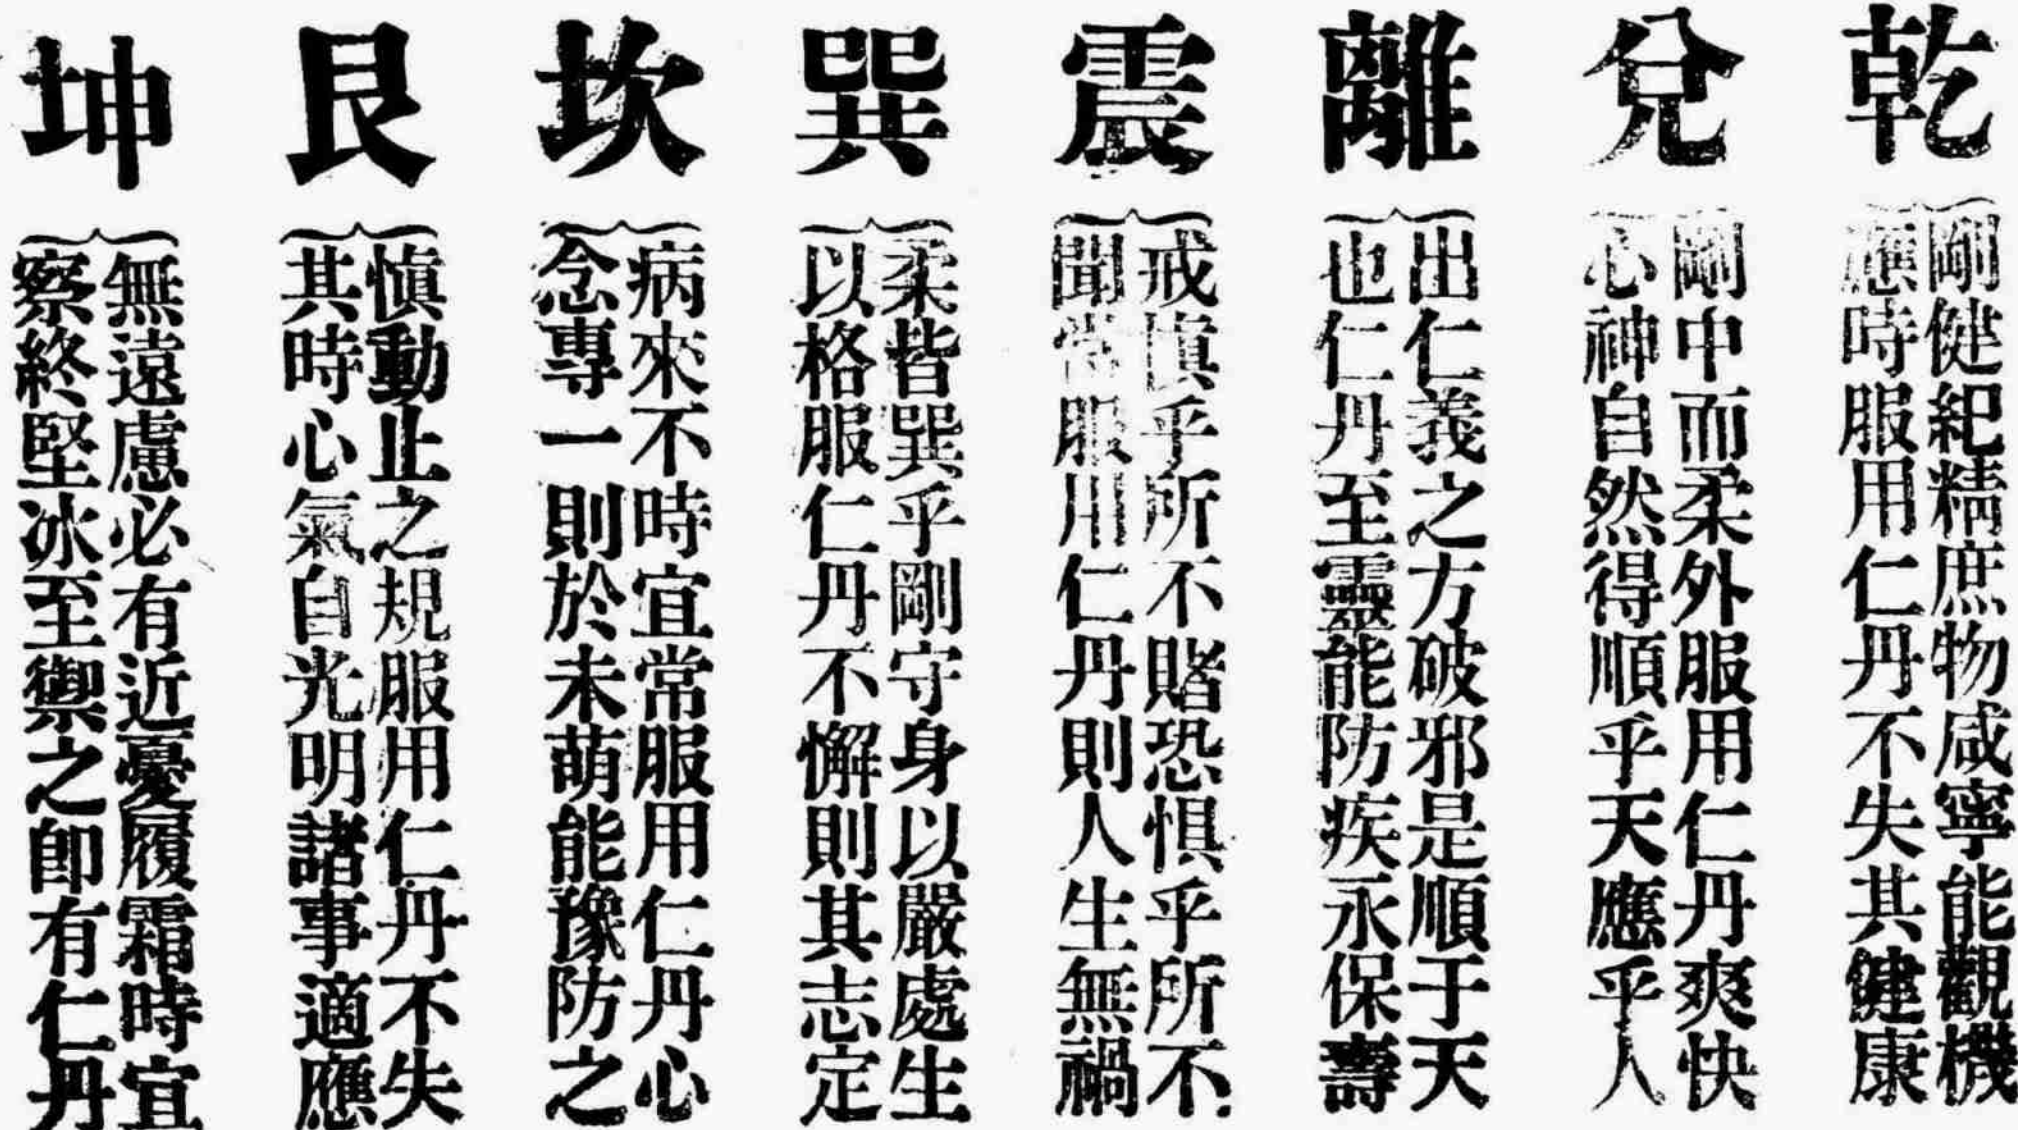 乾
剛健紀精庶物咸寧能觀機
應時服用仁丹不失其健康
兌
剛中而柔外服用仁丹爽快
心神自然得順乎天應乎人
離
出仁義之方破邪是順于天
也仁丹至靈能防疾永保壽
震
戒慎乎所不賭恐惧乎所不
聞常服用仁丹則人生無禍
巽
柔皆巽乎剛守身以嚴處生
以格服仁丹不懈則其志定
坎
病來不時宜常服用仁丹心
念專一則於未萌能豫防之
艮
慎動止之規服用仁丹不失
其時心氣自光明諸事適應
坤
無遠慮必有近憂履霜時宜
察終堅冰至禦之卽有仁丹